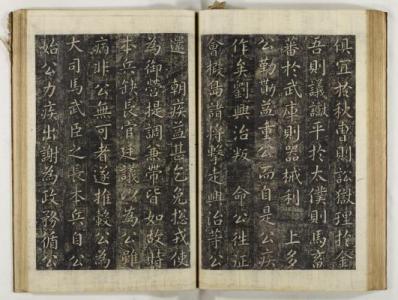 宜於秋曹則訟獄理於金
吾則議讞平於太僕則馬畜
蕃於武庫則器械利 上多
公勤益重公而自是公疾
作矣劉興治叛 命公往征
會椵島諸將擊走興治等公
還 朝疾益甚乞免摠戎使
為御營提調兼帶皆如故時
本兵缺長官廷議以為公雖
病非公無可者遂推轂公為
大司馬武臣之長本兵自公
始公力疾出謝為政務循公